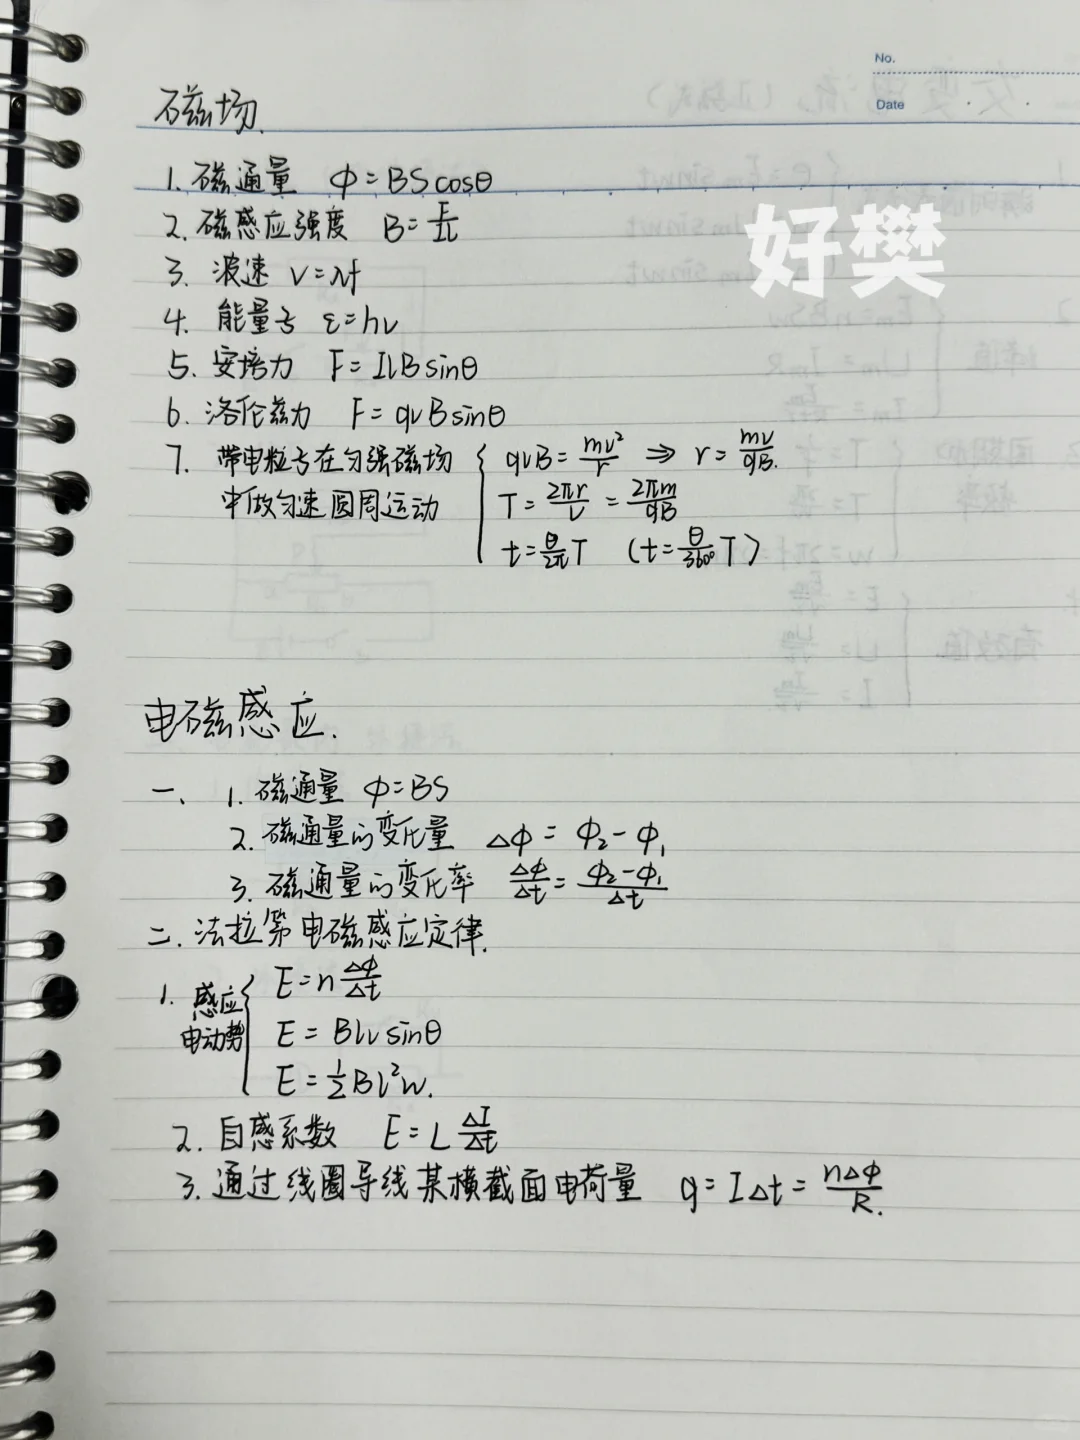 No.
Date
磁场.
1. 磁通量 Φ=BScosθ
好樊
2. 磁感应强度 B=F/IL
3. 波速 v=λf
4. 能量子 ε=hν
5. 安培力 F=ILBsinθ
6. 洛伦兹力 F=qvBsinθ
7. 带电粒子在匀强磁场 { qvB=mv²/r ⇒ r=mv/qB.
中做匀速圆周运动 T=2πr/v=2πm/qB
t=θ/2π T (t=θ/360° T)
电磁感应.
一、1. 磁通量 Φ=BS
2. 磁通量的变化量 ΔΦ=Φ₂-Φ₁
3. 磁通量的变化率 ΔΦ/Δt=Φ₂-Φ₁/Δt
二. 法拉第电磁感应定律.
1. 感应电动势 { E=nΔΦ/Δt
E=Blvsinθ
E=½Bl²w.
2. 自感系数 E=LΔI/Δt
3. 通过线圈导线某横截面电荷量 q=IΔt=nΔΦ/R.